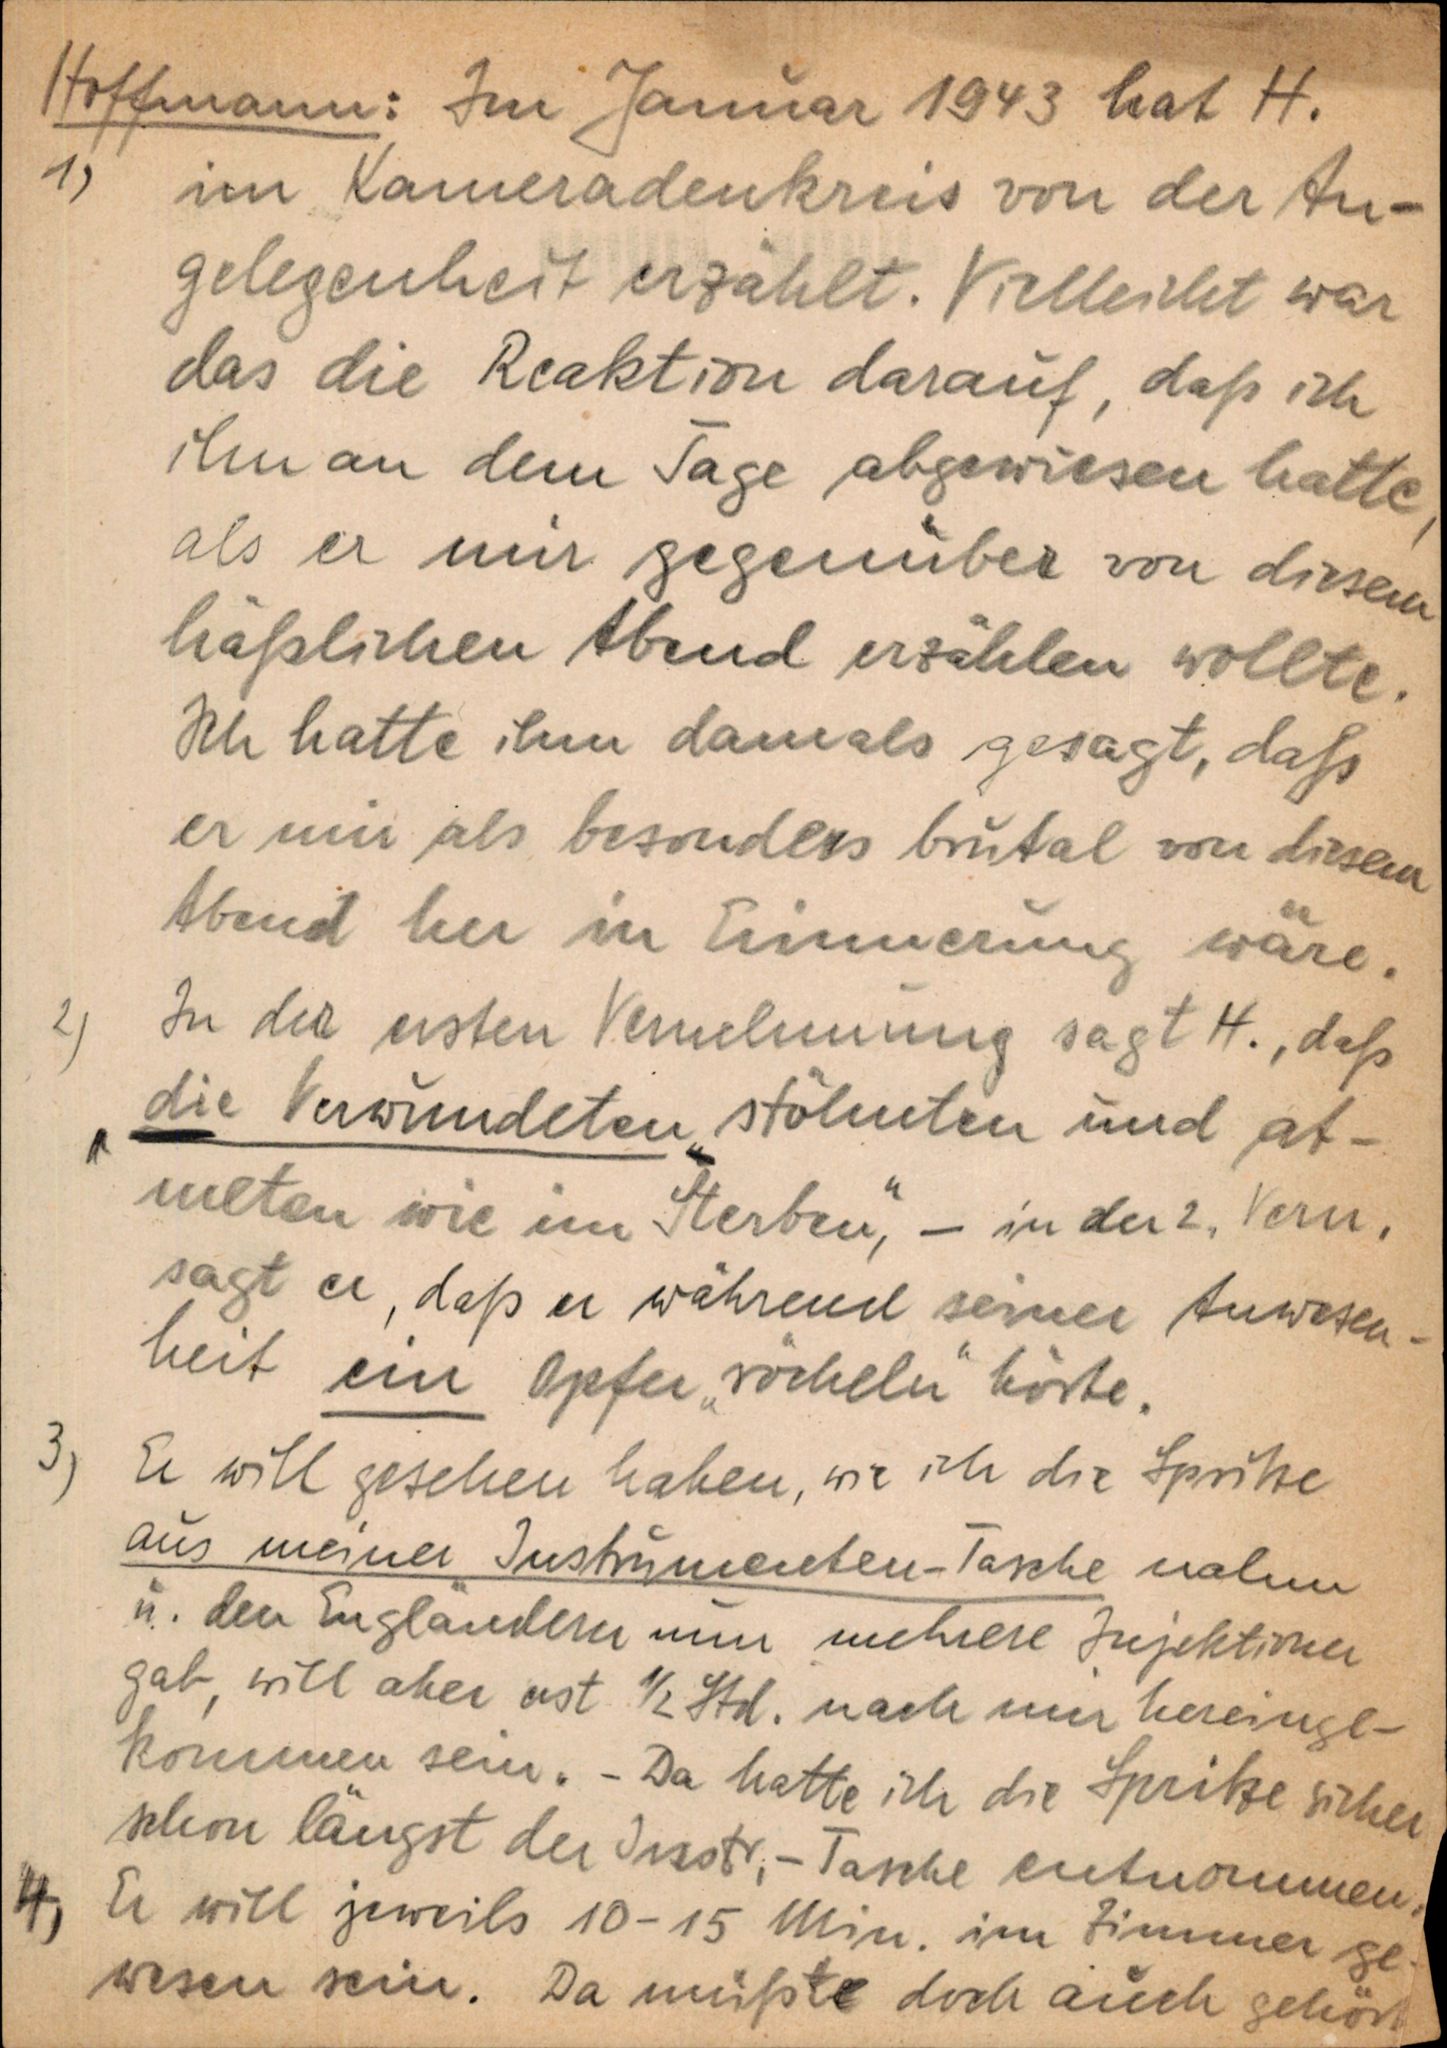 Hoffmann: Im Januar 1943 hat H.
1) im Kameradenkreis von der An-
gelegenheit erzählt. Vielleicht war
das die Reaktion darauf, daß ich
ihn an dem Tage abgewiesen hatte,
als er mir gegenüber von diesem
häßlichen Abend erzählen wollte.
Ich hatte ihm damals gesagt, daß
er mir als besonders brutal von diesem
Abend her in Erinnerung wäre.
2) In der ersten Vernehmung sagt H., daß
die Verwundeten „stöhnten und at-
meten wie im Sterben“, – in der 2. Vern.
sagt er, daß er während seiner Anwesen-
heit ein Opfer „röcheln“ hörte.
3) Er will gesehen haben, wie ich die Spritze
aus meiner Instrumenten-Tasche nahm
u. den Engländern nun mehrere Injektionen
gab, will aber erst 1/2 Std. nach mir hereinge-
kommen sein. – Da hatte ich die Spritze sicher
schon längst der Instr.-Tasche entnommen.
4) Er will jeweils 10-15 Min. im Zimmer ge-
wesen sein. Da müßte doch auch gehört